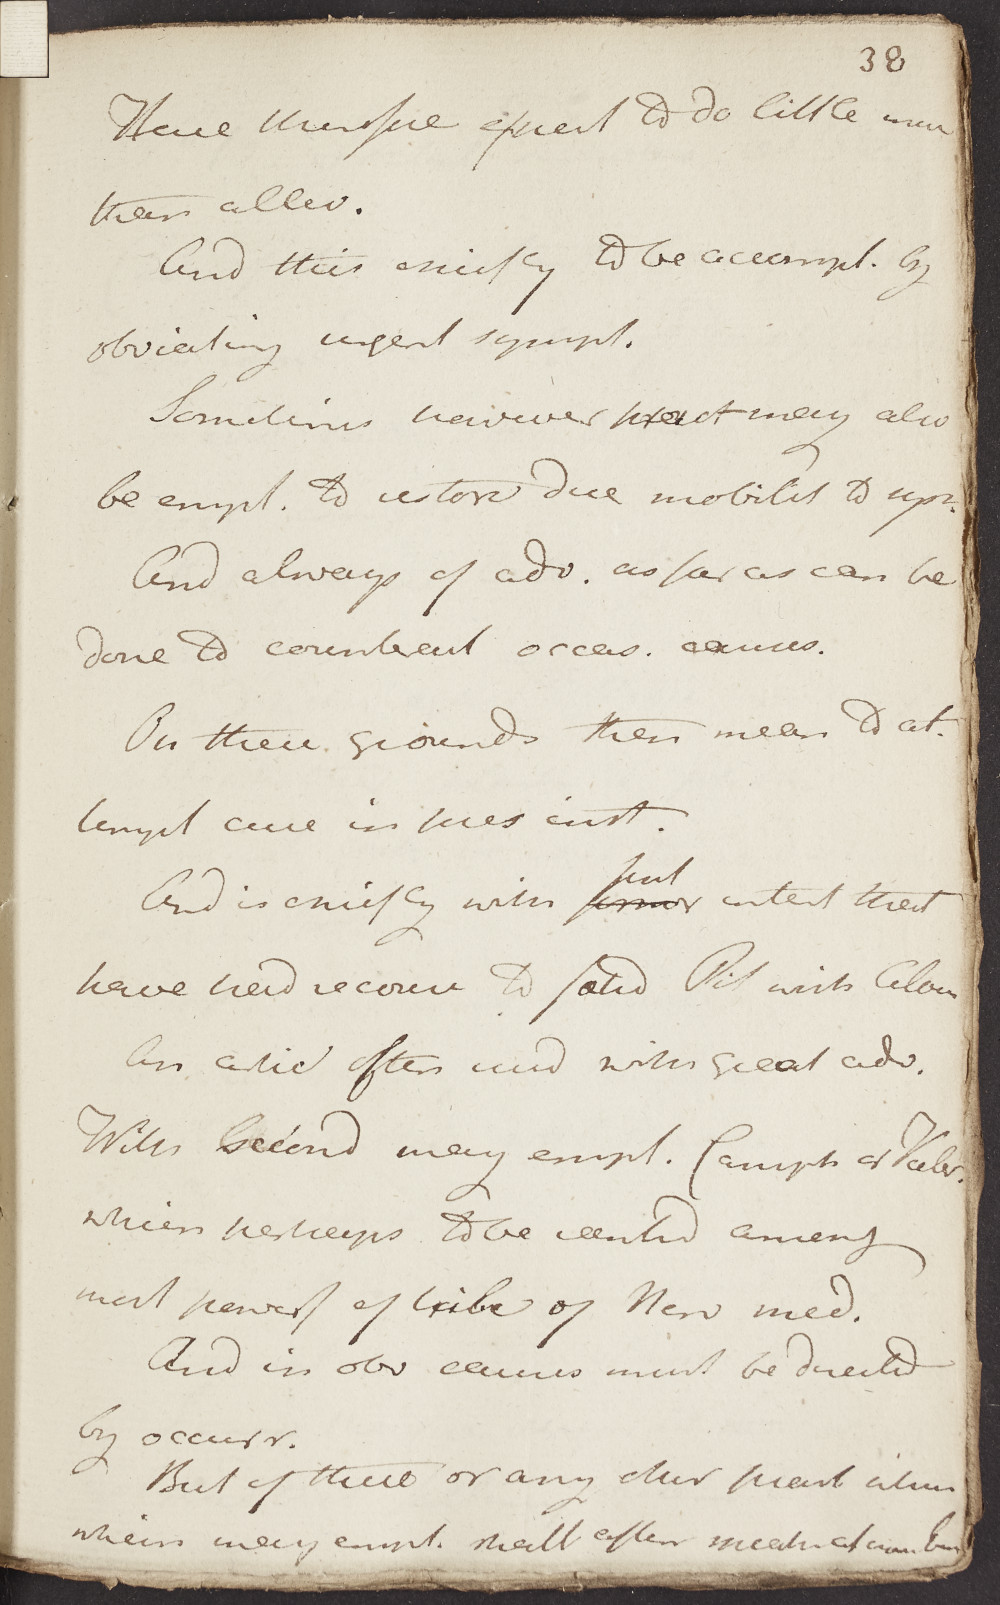 38
Have therefore expect to do little more
than allev.
And this chiefly to be accompl. by
obviating urgent sympt.
Sometimes however pract may also
be empl. to restore due mobilit to
And always of adv. as far as can be
done to counteract occas. causes.
On these grounds then mean to at-
tempt cure in pres inst.
And is chiefly with first intent that
have had recourse to fœtid Pil with Aloes
An artic often used with great adv.
With second may empl. Camph or Valer.
which perhaps to be ranked among
most powerf of tribe of Nerv med.
And in obv causes must be directed
by occurr.
But of these or any other pract
which may empl. shall after